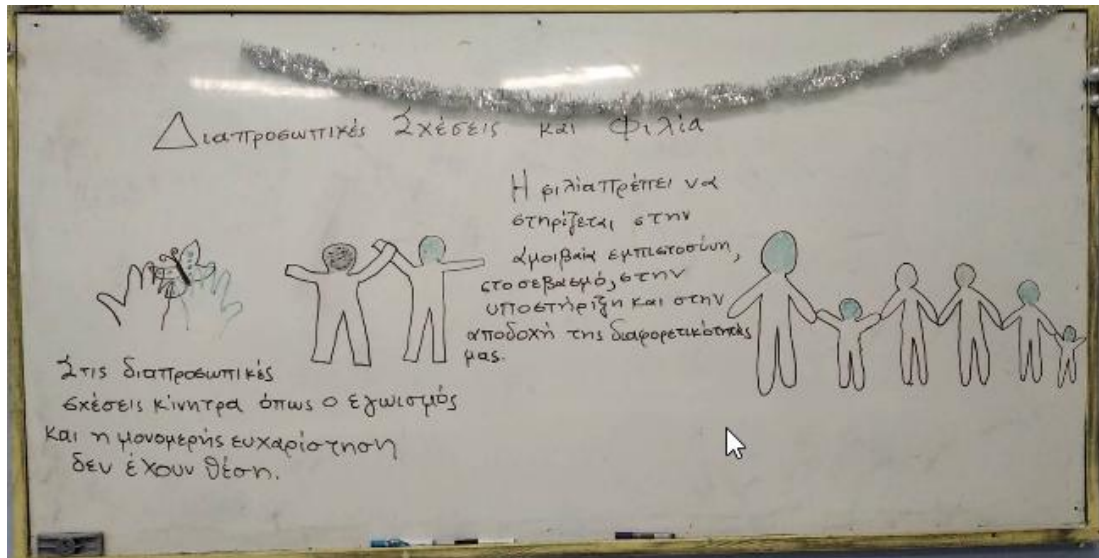 Διαπροσωπικές Σχέσεις και Φιλία
Η φιλία πρέπει να
στηρίζεται στην
άμοιβαία εμπιστοσύνη,
στο σεβασμό, στην
υποστήριξη και στην
αποδοχή της διαφορετικότητάς
μας.
Στις διαπροσωπικές
σχέσεις κίνητρα όπως ο εγωισμός
και η μονομερής ευχαρίστηση
δεν έχουν θέση.